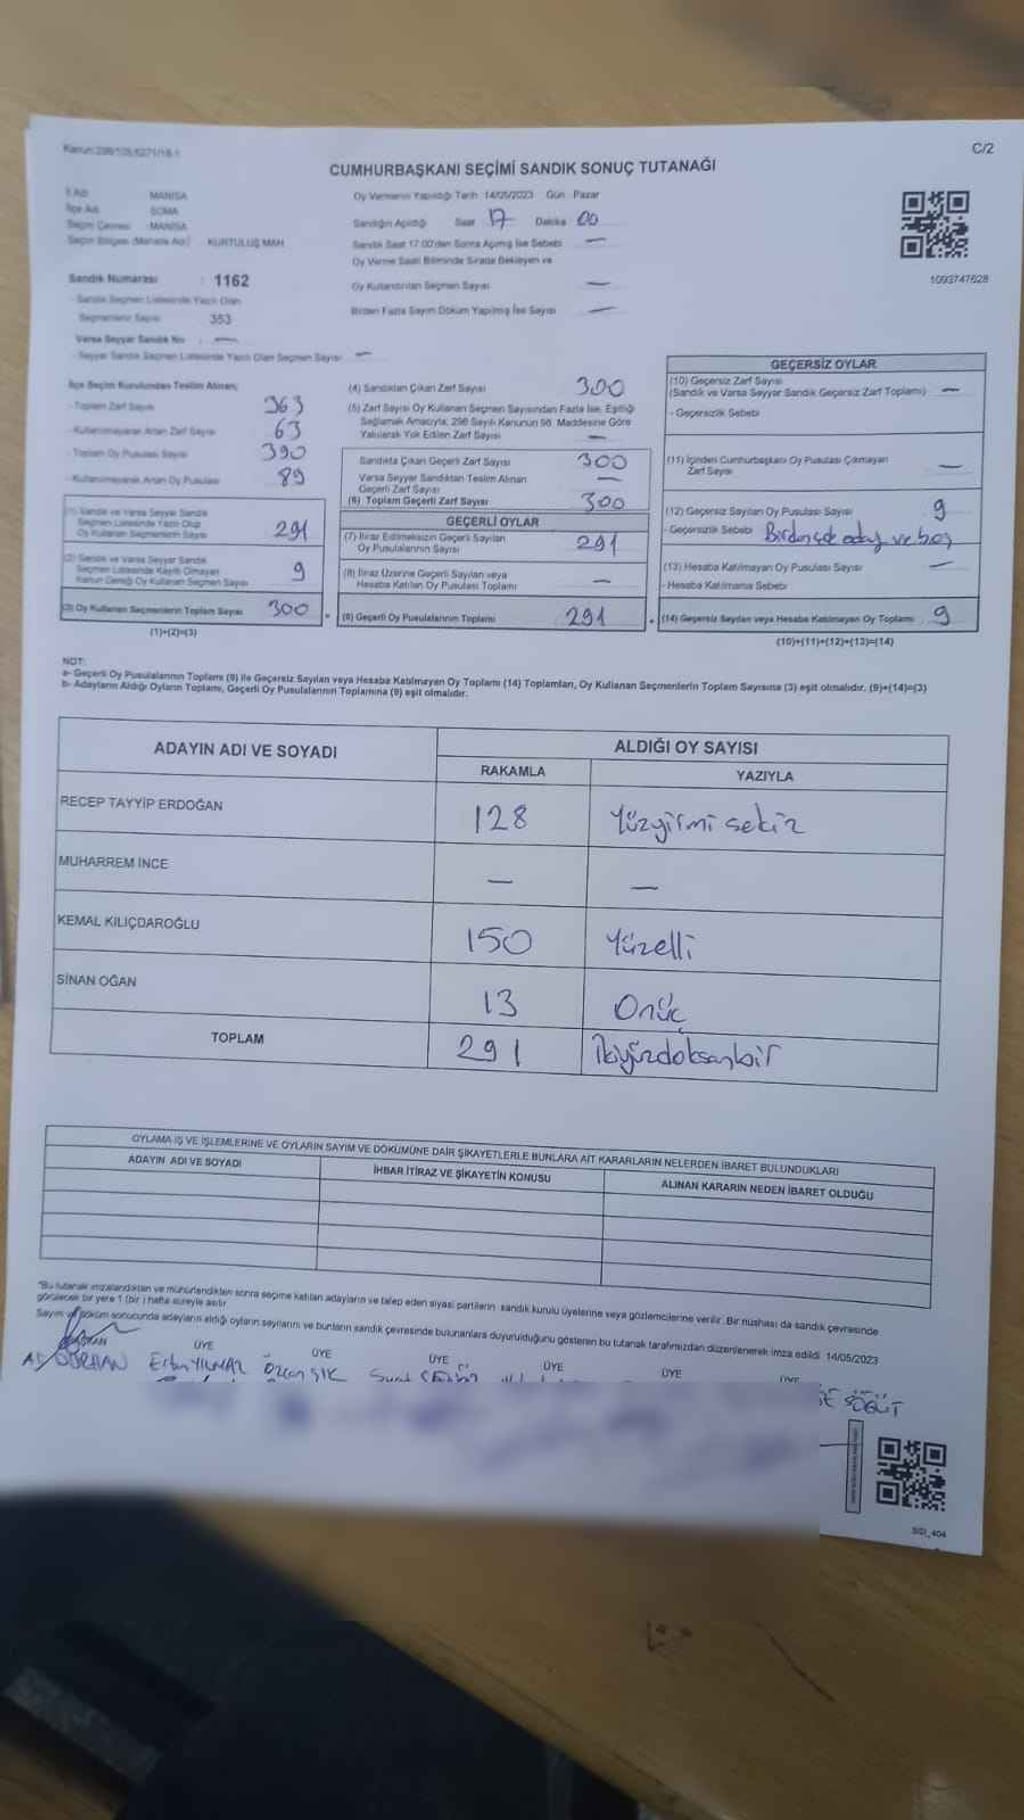 Kanun:298/105,6271/18-1
C/2
CUMHURBAŞKANI SEÇİMİ SANDIK SONUÇ TUTANAĞI
İl Adı MANİSA
İlçe Adı SOMA
Seçim Çevresi MANİSA
Seçim Bölgesi (Mahalle Adı) KURTULUŞ MAH
Sandık Numarası : 1162
- Sandık Seçmen Listesinde Yazılı Olan
Seçmenlerin Sayısı 353
Varsa Seyyar Sandık No : —
- Seyyar Sandık Seçmen Listesinde Yazılı Olan Seçmen Sayısı —
Oy Vermenin Yapıldığı Tarih 14/05/2023 Gün Pazar
Sandığın Açıldığı Saat 17 Dakika 00
Sandık Saat 17.00'den Sonra Açılmış İse Sebebi —
Oy Verme Saati Bitiminde Sırada Bekleyen ve
Oy Kullandırılan Seçmen Sayısı —
Birden Fazla Sayım Döküm Yapılmış İse Sayısı —
1093747628
İlçe Seçim Kurulundan Teslim Alınan;
- Toplam Zarf Sayısı 363
- Kullanılmayarak Artan Zarf Sayısı 63
- Toplam Oy Pusulası Sayısı 390
- Kullanılmayarak Artan Oy Pusulası 89
(1) Sandık ve Varsa Seyyar Sandık
Seçmen Listesinde Yazılı Olup
Oy Kullanan Seçmenlerin Sayısı 291
(2) Sandık ve Varsa Seyyar Sandık
Seçmen Listesinde Kaydı Olmayan
Kanun Gereği Oy Kullanan Seçmen Sayısı 9
(3) Oy Kullanan Seçmenlerin Toplam Sayısı 300
(1)+(2)=(3)
(4) Sandıktan Çıkan Zarf Sayısı 300
(5) Zarf Sayısı Oy Kullanan Seçmen Sayısından Fazla İse, Eşitliği
Sağlamak Amacıyla, 298 Sayılı Kanunun 98. Maddesine Göre
Yakılarak Yok Edilen Zarf Sayısı —
Sandıkta Çıkan Geçerli Zarf Sayısı 300
Varsa Seyyar Sandıktan Teslim Alınan
Geçerli Zarf Sayısı —
(6) Toplam Geçerli Zarf Sayısı 300
GEÇERLİ OYLAR
(7) İtiraz Edilmeksizin Geçerli Sayılan
Oy Pusulalarının Sayısı 291
(8) İtiraz Üzerine Geçerli Sayılan veya
Hesaba Katılan Oy Pusulası Toplamı —
= (9) Geçerli Oy Pusulalarının Toplamı 291
GEÇERSİZ OYLAR
(10) Geçersiz Zarf Sayısı
(Sandık ve Varsa Seyyar Sandık Geçersiz Zarf Toplamı) —
- Geçersizlik Sebebi
(11) İçinden Cumhurbaşkanı Oy Pusulası Çıkmayan
Zarf Sayısı —
(12) Geçersiz Sayılan Oy Pusulası Sayısı 9
- Geçersizlik Sebebi ve boş
(13) Hesaba Katılmayan Oy Pusulası Sayısı —
- Hesaba Katılmama Sebebi
+ (14) Geçersiz Sayılan veya Hesaba Katılmayan Oy Toplamı 9
(10)+(11)+(12)+(13)=(14)
NOT:
a- Geçerli Oy Pusulalarının Toplamı (9) ile Geçersiz Sayılan veya Hesaba Katılmayan Oy Toplamı (14) Toplamları, Oy Kullanan Seçmenlerin Toplam Sayısına (3) eşit olmalıdır. (9)+(14)=(3)
b- Adayların Aldığı Oyların Toplamı, Geçerli Oy Pusulalarının Toplamına (9) eşit olmalıdır.
ADAYIN ADI VE SOYADI ALDIĞI OY SAYISI
RAKAMLA YAZIYLA
RECEP TAYYİP ERDOĞAN 128 Yüzyirmi sekiz
MUHARREM İNCE — —
KEMAL KILIÇDAROĞLU 150 Yüzelli
SİNAN OĞAN 13 Onüç
TOPLAM 291 İkiyüzdoksanbir
OYLAMA İŞ VE İŞLEMLERİNE VE OYLARIN SAYIM VE DÖKÜMÜNE DAİR ŞİKAYETLERLE BUNLARA AİT KARARLARIN NELERDEN İBARET BULUNDUKLARI
ADAYIN ADI VE SOYADI İHBAR İTİRAZ VE ŞİKAYETİN KONUSU ALINAN KARARIN NEDEN İBARET OLDUĞU
*Bu tutanak imzalandıktan ve mühürlendikten sonra seçime katılan adayların ve talep eden siyasi partilerin sandık kurulu üyelerine veya gözlemcilerine verilir. Bir nüshası da sandık çevresinde
görülecek bir yere 1 (bir) hafta süreyle asılır.
Sayım ve döküm sonucunda adayların aldığı oyların sayılarını ve bunların sandık çevresinde bulunanlara duyurulduğunu gösteren bu tutanak tarafımızdan düzenlenerek imza edildi. 14/05/2023
BAŞKAN ÜYE ÜYE ÜYE ÜYE ÜYE ÜYE
YILMAZ Özcan IŞIK SÖĞÜT
SGI_404